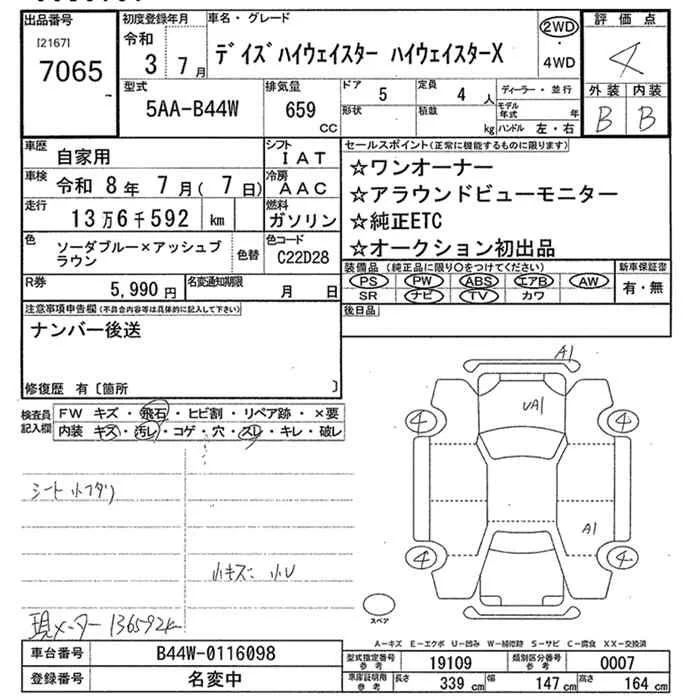 出品番号
[2167]
7065
初度登録年月
令和
3 7月
車名・グレード
デイズハイウェイスター ハイウェイスターX
2WD
・
4WD
評価点
4
外装 内装
B B
型式
5AA-B44W
排気量
659
cc
ドア
5
定員
4 人
形状
積載
kg
ディーラー・並行
モデル年式 年
ハンドル 左・右
車歴
自家用
シフト
IAT
車検
令和 8年 7月( 7日)
冷房
AAC
走行
13万6千592 km
燃料
ガソリン
色
ソーダブルー×アッシュブラウン
色替
色コード
C22D28
R券
5,990円
名変通知期限
月 日
セールスポイント(正常に機能するものに限ります)
☆ワンオーナー
☆アラウンドビューモニター
☆純正ETC
☆オークション初出品
装備品(純正品に限り○をつけてください)
新車保証書
PS PW ABS エアB AW
SR ナビ TV カワ
有・無
後日品
注意事項申告欄(不具合内容等は具体的に記入して下さい)
ナンバー後送
修復歴 有〔箇所 〕
検査員記入欄
FW キズ・飛石・ヒビ割・リペア跡・×要
内装 キズ・汚レ・コゲ・穴・スレ・キレ・破レ
シート
小キズ 小U
現メーター 136592k
A1
UA1
4
4
A1
4
4
スペア
A-キズ E-エクボ U-凹み W-補修跡 S-サビ C-腐食 XX-交換済
車台番号
B44W-0116098
登録番号
名変中
型式指定番号 参考
19109
類別区分番号 参考
0007
車庫証明用 参考
長さ 339 cm
幅 147 cm
高さ 164 cm